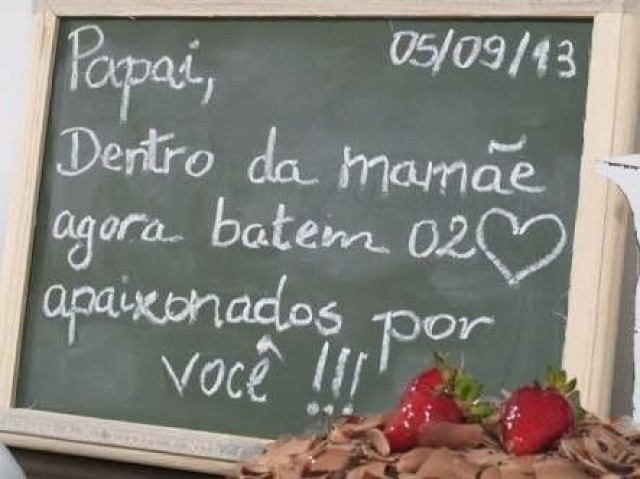 Papai, 05/09/13
Dentro da mamãe
agora batem 02 ♡
apaixonados por
você !!!